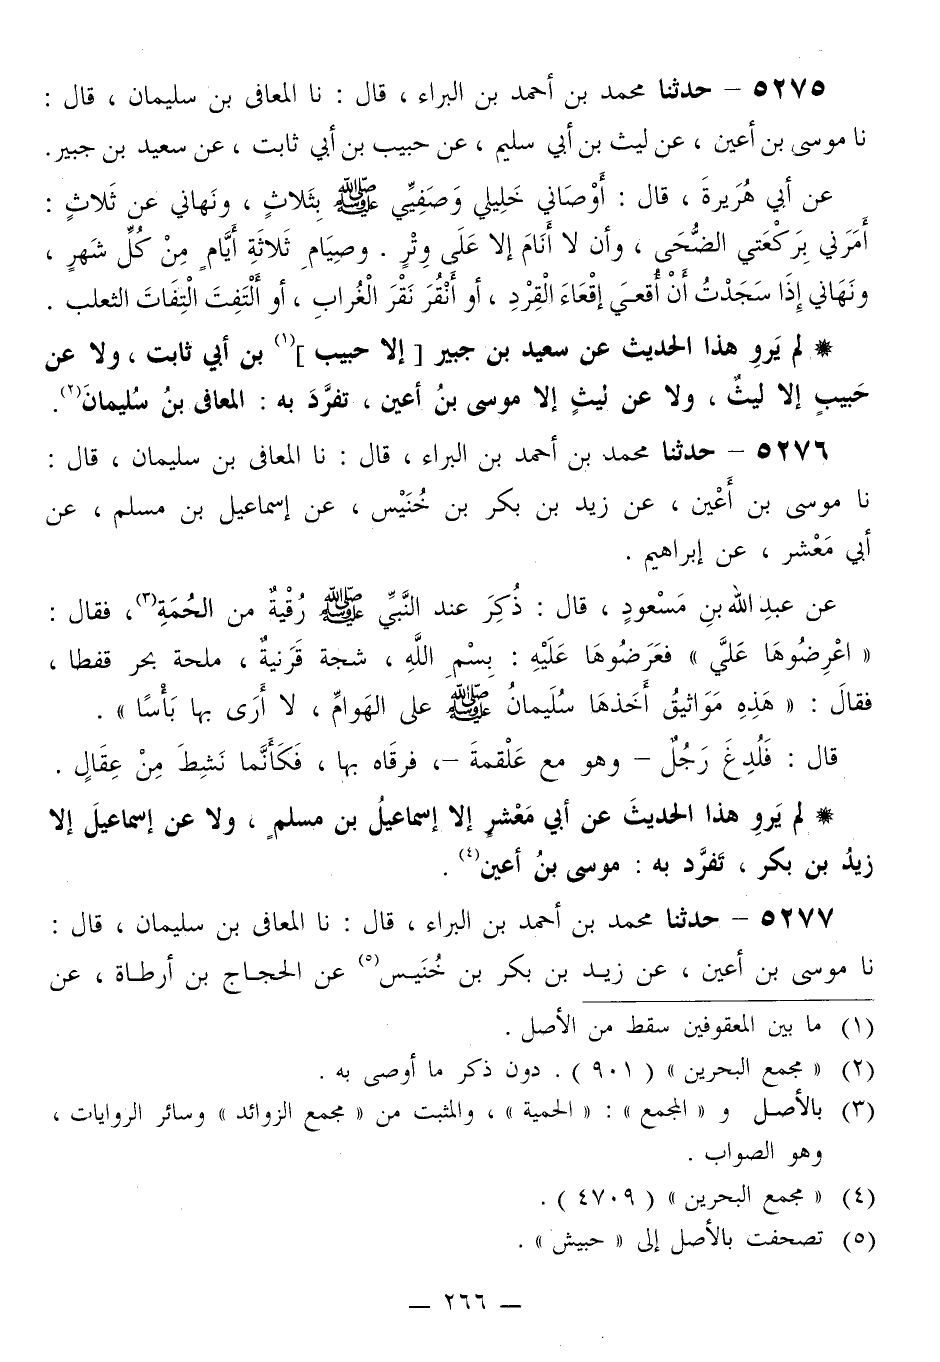 ٥٢٧٥ – حدثنا محمد بن أحمد بن البراء ، قال : نا المعافى بن سليمان ، قال :
نا موسى بن أعين ، عن ليث بن أبي سليم ، عن حبيب بن أبي ثابت ، عن سعيد بن جبير.
عن أبي هُرَيرةَ ، قال : أَوْصَاني خَلِيلي وَصَفِيِّي ﷺ بِثَلاثٍ ، ونَهاني عن ثَلاثٍ :
أَمَرَني بِرَكْعَتي الضُّحَى ، وأن لا أَنَامَ إلا عَلَى وِتْرٍ . وصِيَامِ ثَلاثَةِ أَيَّامٍ مِنْ كُلِّ شَهرٍ ،
ونَهَاني إذَا سَجَدْتُ أَنْ أُقعىَ إقْعَاءَ القِرْدِ ، أو أَنْقُرَ نَقْرَ الْغُرابِ ، أو أَلْتَفِتَ الْتِفَاتَ الثعلب .
* لم يَروِ هذا الحديث عن سعيد بن جبير [ إلا حبيب ](١) بن أبي ثابت ، ولا عن
حَبيبٍ إلا ليثٌ ، ولا عن ليثٍ إلا موسى بنُ أعين ، تفرَّدَ به : المعافى بنُ سُليمانَ(٢).
٥٢٧٦ – حدثنا محمد بن أحمد بن البراء ، قال : نا المعافى بن سليمان ، قال :
نا موسى بن أَعْين ، عن زيد بن بكر بن خُنَيْس ، عن إسماعيل بن مسلم ، عن
أبي مَعْشر ، عن إبراهيم .
عن عبدِ اللهِ بنِ مَسْعودٍ ، قال : ذُكِرَ عند النَّبيِّ ﷺ رُقْيةٌ من الحُمَةِ(٣)، فقال :
« اعْرِضُوهَا عَلَيَّ » فعَرَضُوهَا عَلَيْهِ : بِسْمِ اللَّهِ ، شجة قَرَنيةٌ ، ملحة بحر قفطا ،
فقالَ : « هَذِهِ مَوَاثيقُ أَخَذهَا سُلَيمانُ ﷺ على الهَوامِّ ، لا أَرَى بها بَأْسًا » .
قال : فَلُدِغَ رَجُلٌ – وهو مع عَلْقمةَ –، فرقَاه بها ، فَكَأَنَّما نَشِطَ مِنْ عِقَالٍ .
* لم يَروِ هذا الحديثَ عن أبي مَعْشرٍ إلا إسماعيلُ بن مسلمٍ ، ولا عن إسماعيلَ إلا
زيدُ بن بكر ، تَفرَّد به : موسى بنُ أعين(٤) .
٥٢٧٧ – حدثنا محمد بن أحمد بن البراء ، قال : نا المعافى بن سليمان ، قال :
نا موسى بن أعين ، عن زيـد بن بكر بن خُنَيـس(٥) عن الحجـاج بن أرطـاة ، عن
(١) ما بين المعقوفين سقط من الأصل .
(٢) « مجمع البحرين » ( ٩٠١ ) . دون ذكر ما أوصى به .
(٣) بالأصـل و « المجمع » : « الحمية » ، والمثبت من « مجمع الزوائد » وسائر الروايات ،
وهو الصواب .
(٤) « مجمع البحرين » ( ٤٧٠٩ ) .
(٥) تصحفت بالأصل إلى « حبيش » .
— ٢٦٦ —